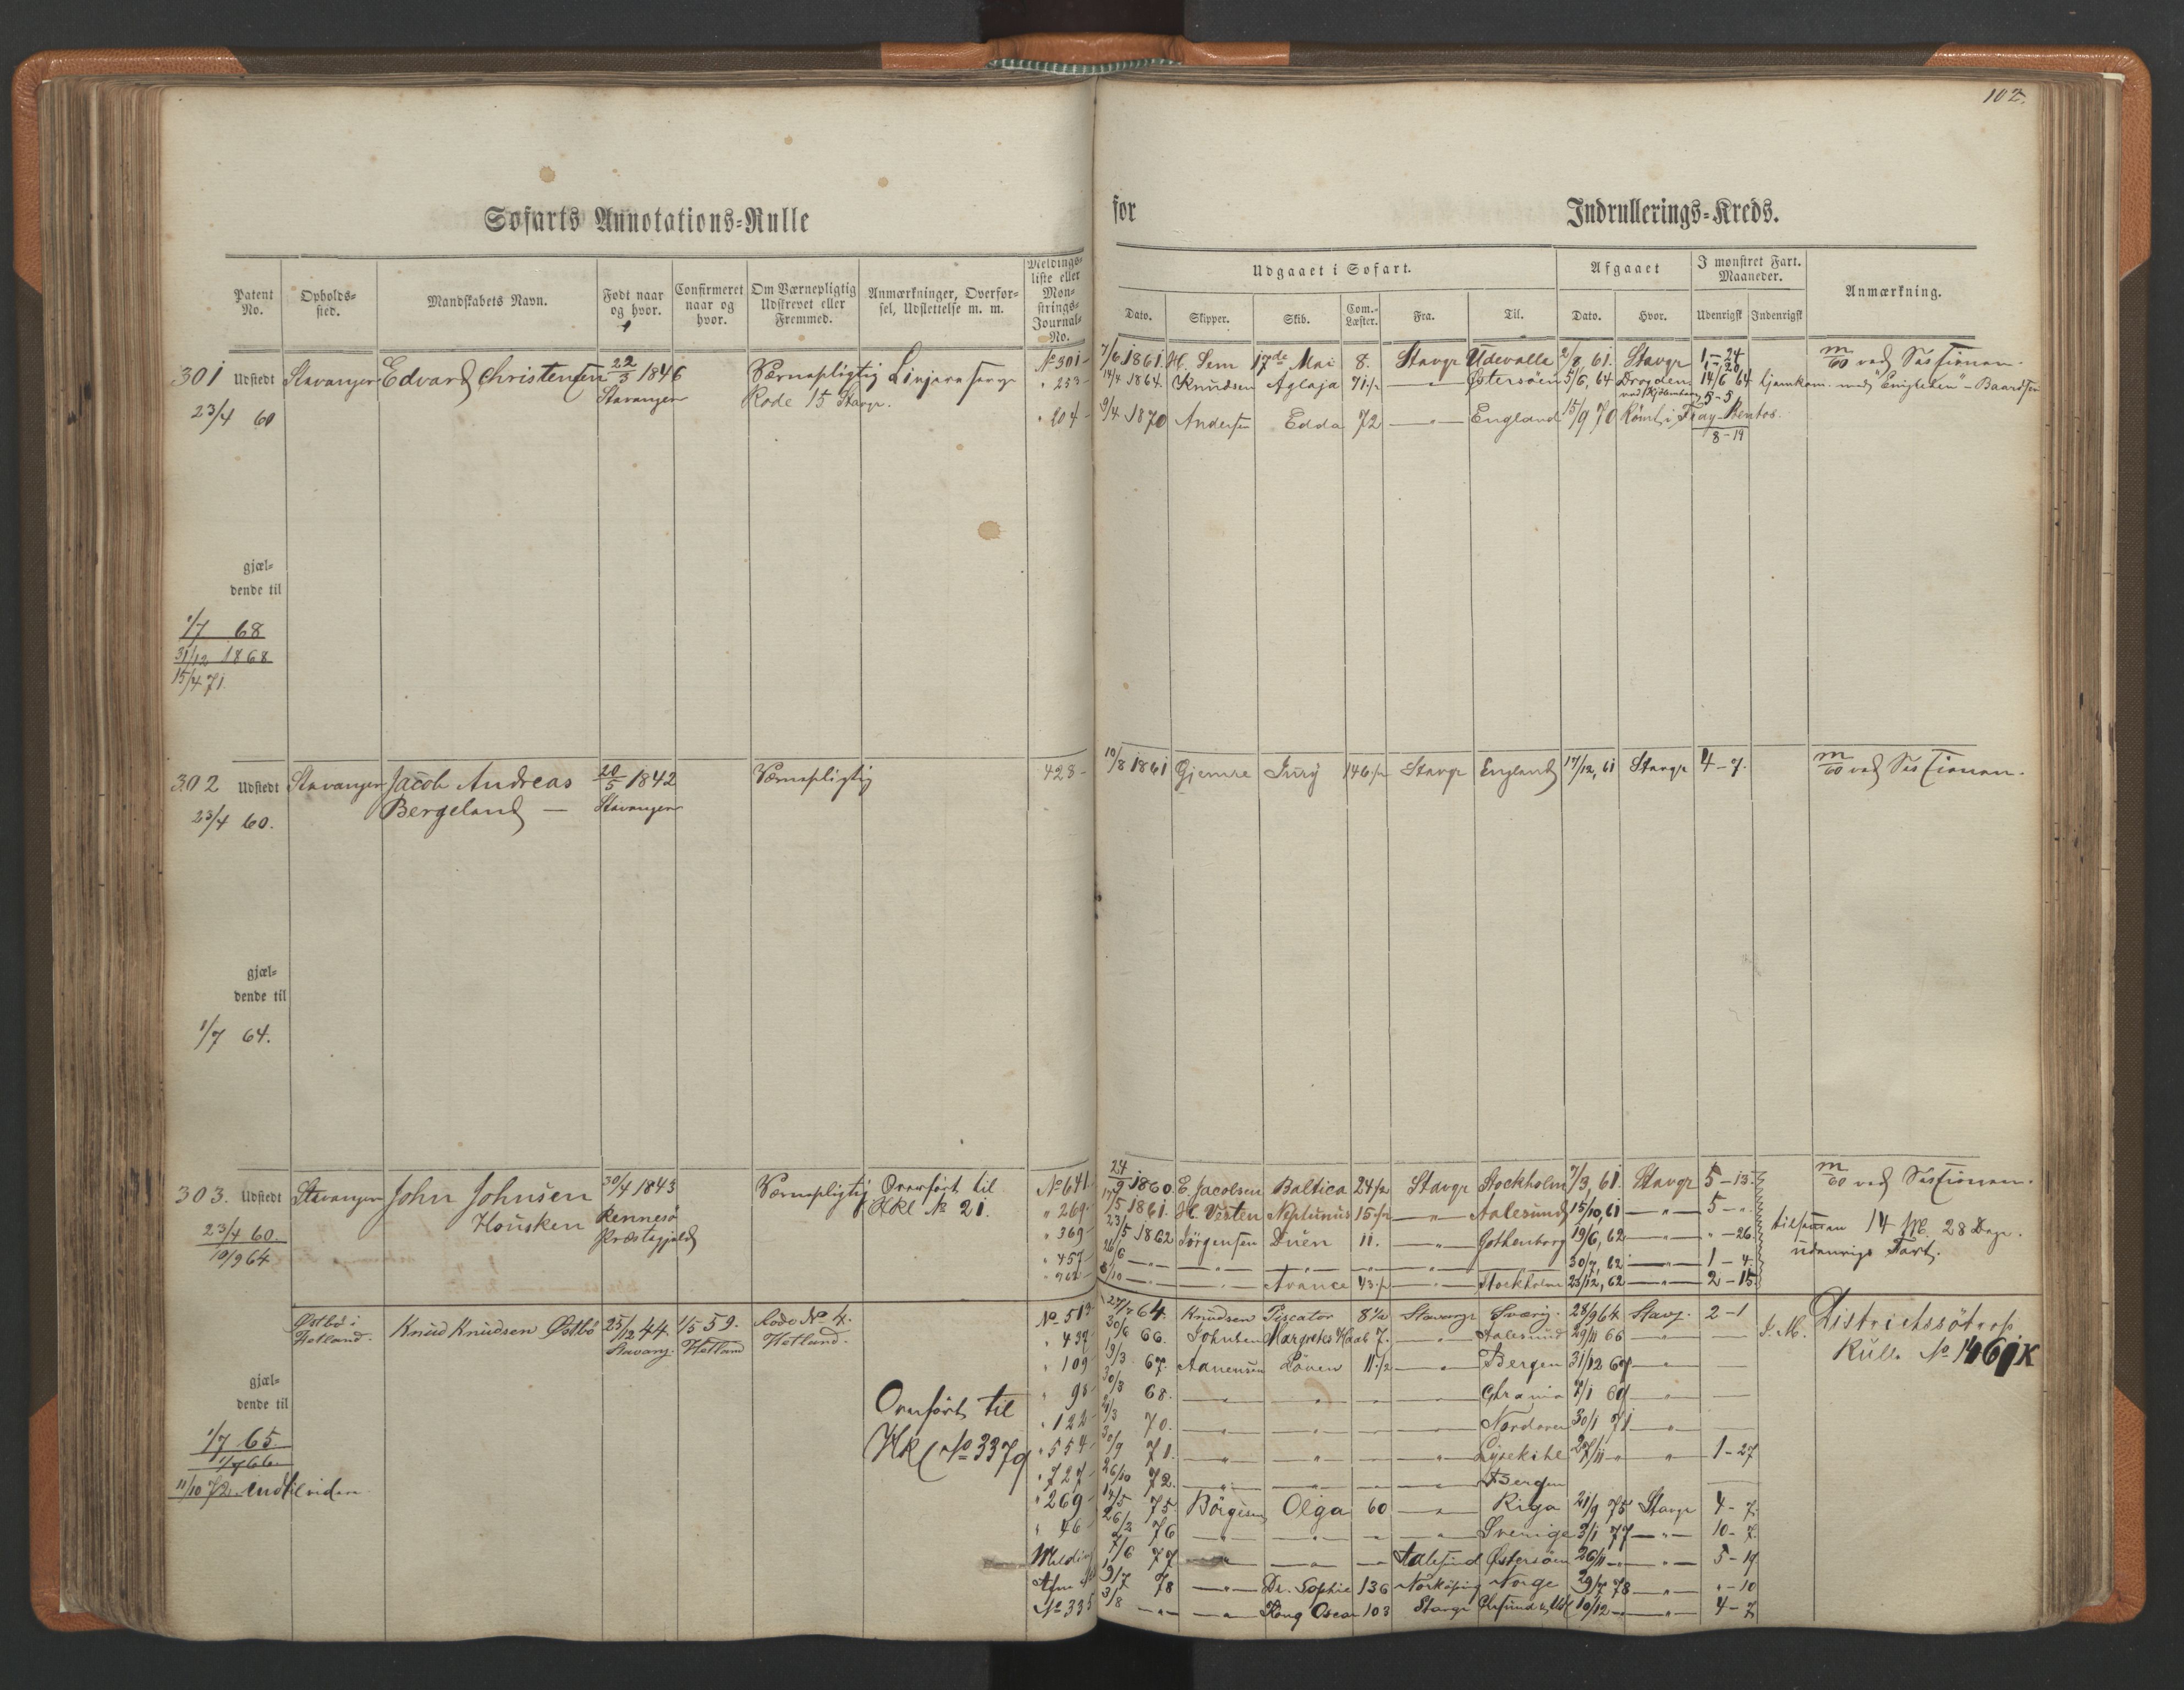 102.
Søfarts Annotations-Rulle for Indrullerings-Kreds.
Patent No.
Opholds-sted.
Mandskabets Navn.
Født naar og hvor.
Confirmeret naar og hvor.
Om Værnepligtig Udskrevet eller Fremmed.
Anmærkninger, Overførsel, Udslettelse m. m.
Meldingsliste eller Mønstrings-Journal-No.
Udgaaet i Søfart.
Dato. Skipper. Skib. Com.-Læster. Fra. Til.
Afgaaet
Dato. Hvor.
I mønstret Fart. Maaneder.
Udenrigsk Indenrigsk
Anmærkning.
301 Udstedt Stavanger Edvard Christensen 22/3 1846 Værnepligtig
23/4 60 Stavanger Rode 15 Stavgr.
No 301 7/6 1861. H. Sem 17de Mai 8. Stavgr Udevalla 2/8, 61. Stavgr 1-24 m/60 ved Sessionen.
" 233 14/4 1864. Knudsen Aglaja 71 1/2 —"— Østersöen 5/6, 64 Drogden 14/6 64 hjemkom. med "Enigheden" - Baardsen
5-5
" 204 9/4 1870 Andersen Edda 72 —"— England 15/9 70 Römt i Fray Bentos.
8-19
gjæl-
dende til
1/7 68
31/12 1868
15/4 71.
302 Udstedt Stavanger Jacob Andreas 20/5 1842 Værnepligtig 428 10/8 1861 Gjemre Jury 146 1/2 Stavgr England 17/12, 61 Stavgr 4-7. m/60 ved Sessionen.
23/4 60. Bergeland — Stavanger
gjæl-
dende til
1/7 64.
303. Udstedt Stavanger John Johnsen 30/4 1843 Værnepligtig Overført til
23/4 60 Housken Rennesö Hkl No 21.
19/9 64 Præstegjeld
No 641 24/9 1860. E. Jacobsen Baltica 24 1/2 Stavgr Stockholm 7/3, 61. Stavgr 5-13. m/60 ved Sessionen.
" 269 17/5 1861. H. Visten Neptunus 15 1/2 —"— Aalesund 15/10, 61 —"— 5-".
" 369 23/5 1862 Jörgensen Duen 11. —"— Gothenborg 19/6, 62 —"— "-26. tilsammen 14 M. 28 Dage.
" 457 26/6 —"— —"— —"— —"— 30/7, 62 —"— 1-4. udenrigs Fart.
8/10 —"— Avance 43 1/2 —"— Stockholm 23/12, 62 —"— 2-15
Østbö i Hetland. Knud Knudsen Østbö 25/12 44. Stavang. 1/5 59. Hetland Rode No 4. Hetland.
No 519 27/7 64. Knudsen Piscator 8 1/2 Stavangr Sverig. 28/9 64 Stavg. 2-1 J. M. Districtssötrops
" 437 30/6 66. Johnsen Margrethes Haab 7. —"— Aalesund 29/11 66 —"— — Rulle No 1461 K
" 109 19/3 67. Aanensen Löven 11 1/2 —"— Bergen 31/12 67 —"— —
" 98 30/3 68. —"— —"— —"— —"— Chrania 2/1 69 —"— —
" 122 2/3 70. —"— Nordover 30/1 71 —"—
" 554 30/9 71. —"— —"— —"— Lysekihl 27/11 —"— 1-27
" 727 26/10 72. —"— Bergen
" 269 14/5 75. Börgesen Olga 60 —"— Riga 21/9 75 Stavgr 4-7.
" 46 26/2 76 —"— —"— —"— Sverige 3/1 77 —"— 10-7.
Melding 7/6 77 —"— Aalesund Østersöen 26/11 —"— 5-19
19/7 78 —"— Dr. Sophie 136 Norköping Norge 29/7 78 —"— "-10
No 335 3/8 —"— Kong Oscar 103 Stavgr 10/12 —"— 4-7
Overført til
Hkl No 3379
gjæl-
dende til
1/7 65.
1/7 66
11/10 72. indtil viden